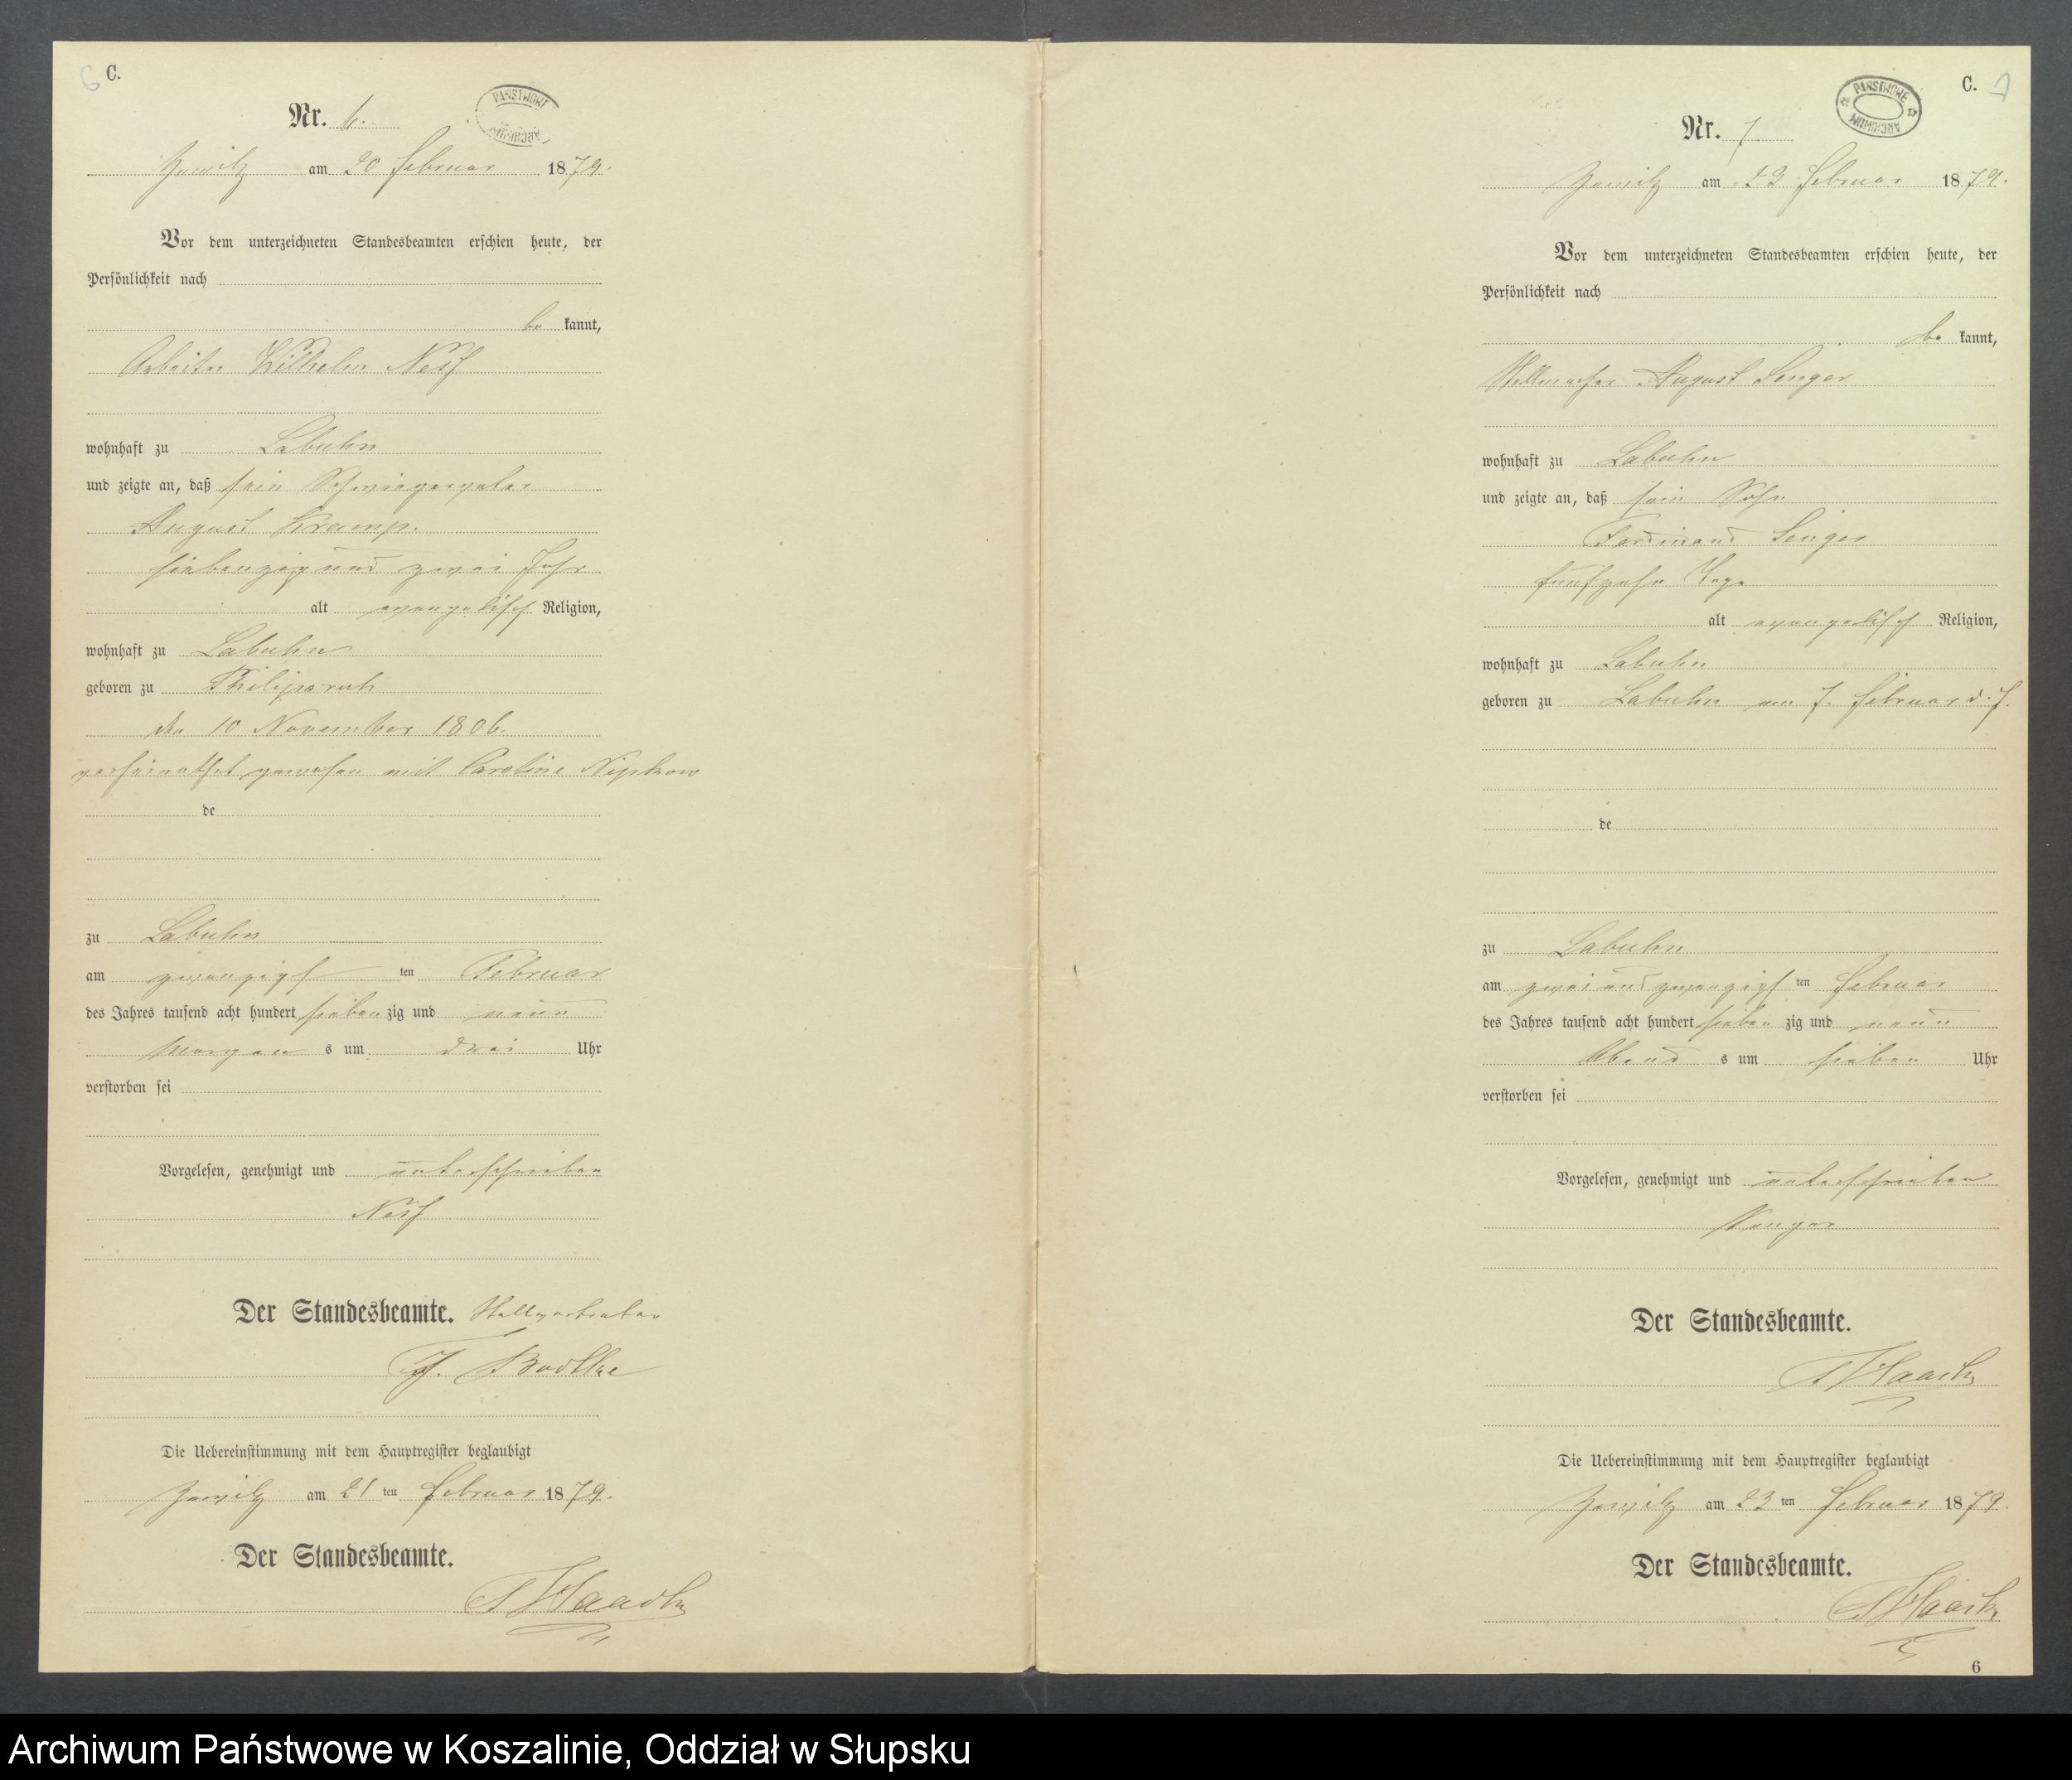 6 C.
PAŃSTWOWE ARCHIWUM
Nr. 6.
Zewitz am 20 Februar 1879.
Vor dem unterzeichneten Standesbeamten erschien heute, der
Persönlichkeit nach
be kannt,
Arbeiter Wilhelm
wohnhaft zu Labuhn
und zeigte an, daß sein Schwiegervater
August Kramp.
siebenzig und zwei Jahr
alt evangelisch Religion,
wohnhaft zu Labuhn
geboren zu
den 10 November 1806.
verheirathet gewesen mit Caroline Nipkow
de
zu Labuhn
am zwanzigs ten Februar
des Jahres tausend acht hundert sieben zig und neun
Morgen s um drei Uhr
verstorben sei
Vorgelesen, genehmigt und unterschrieben
Der Standesbeamte. Stellvertreter
Die Uebereinstimmung mit dem Hauptregister beglaubigt
Zewitz am 21 ten Februar 1879.
Der Standesbeamte.
C. 7
PAŃSTWOWE ARCHIWUM
Nr. 7.
Zewitz am 23 Februar 1879.
Vor dem unterzeichneten Standesbeamten erschien heute, der
Persönlichkeit nach
be kannt,
Stellmacher August Senger
wohnhaft zu Labuhn
und zeigte an, daß sein Sohn
Ferdinand Senger
fünfzehn Tage
alt evangelisch Religion,
wohnhaft zu Labuhn
geboren zu Labuhn am 7. Februar d. J.
de
zu Labuhn
am zwei und zwanzigs ten Februar
des Jahres tausend acht hundert sieben zig und neun
Abend s um sieben Uhr
verstorben sei
Vorgelesen, genehmigt und unterschrieben
Senger
Der Standesbeamte.
Die Uebereinstimmung mit dem Hauptregister beglaubigt
Zewitz am 23 ten Februar 1879.
Der Standesbeamte.
6
Archiwum Państwowe w Koszalinie, Oddział w Słupsku